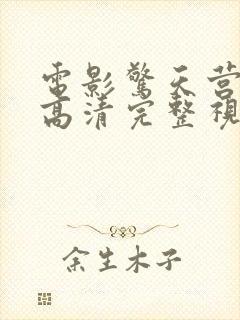 電影驚天营
高清完整視
余生木子